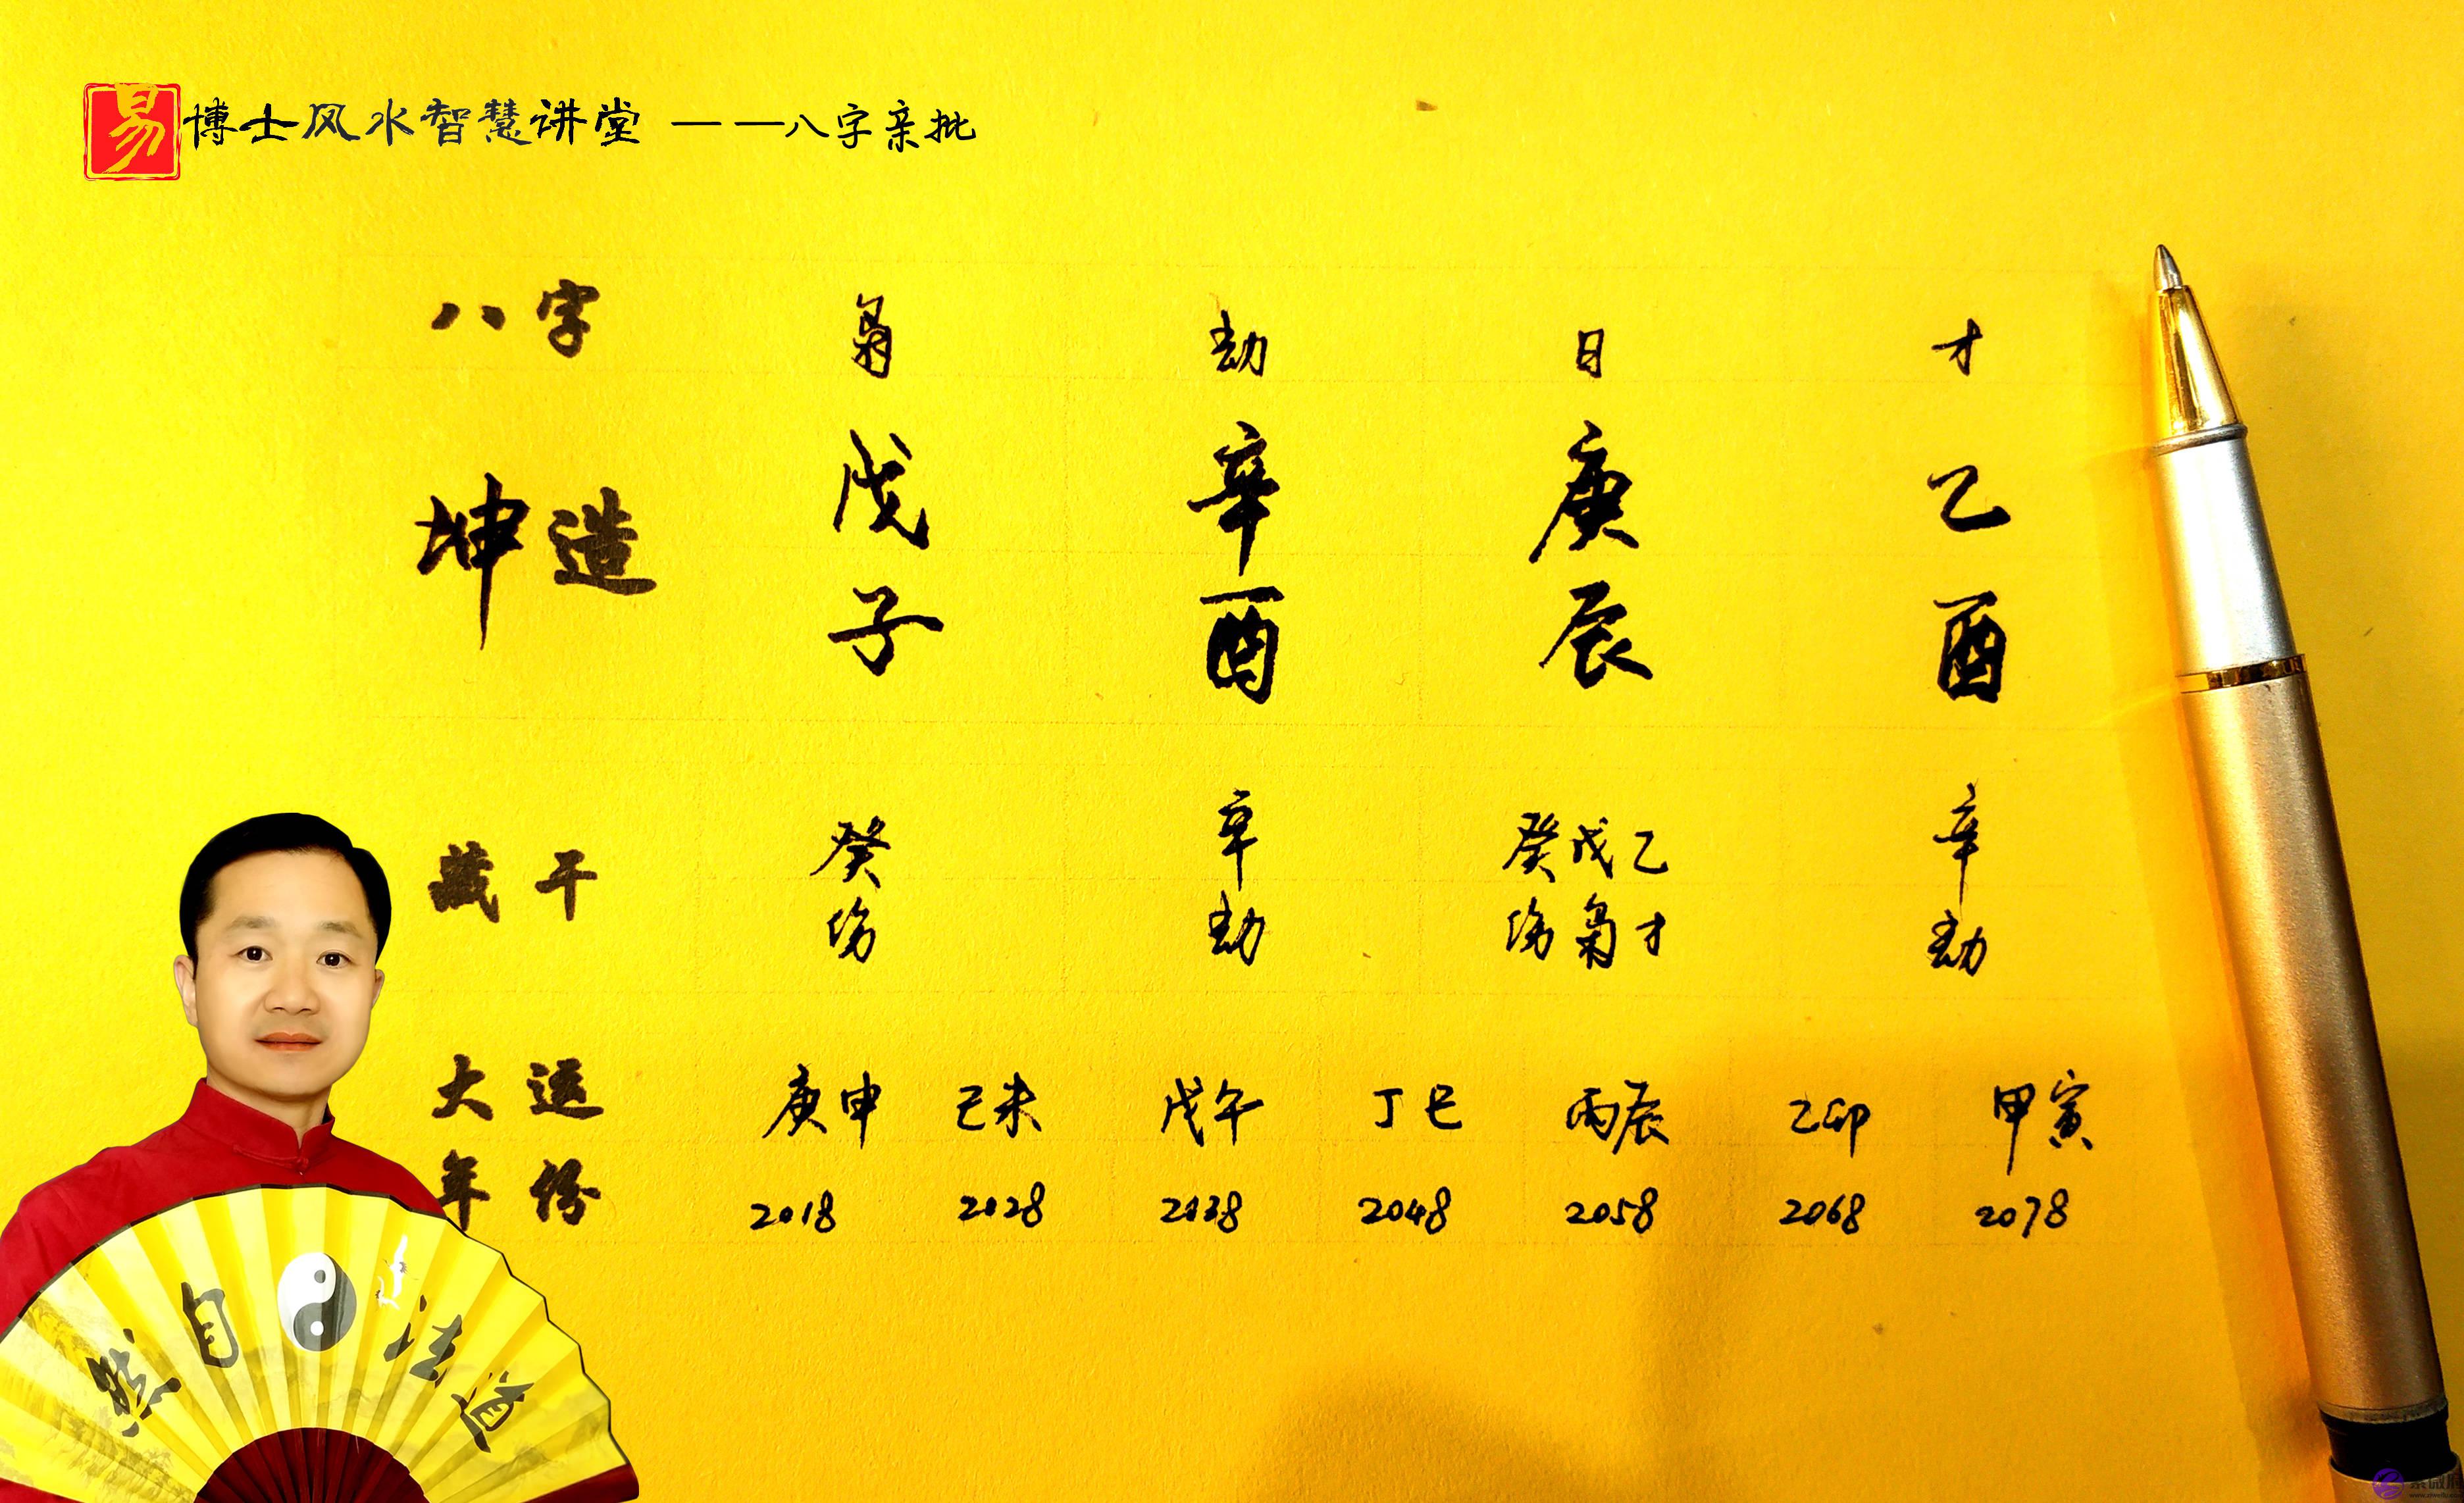 易博士风水智慧讲堂 ——八字亲批
八字 枭 劫 日 才
坤造 戊 辛 庚 乙
子 酉 辰 酉
藏干 癸 辛 癸戊乙 辛
伤 劫 伤枭才 劫
大运 庚申 己未 戊午 丁巳 丙辰 乙卯 甲寅
年份 2018 2028 2038 2048 2058 2068 2078
然自法道